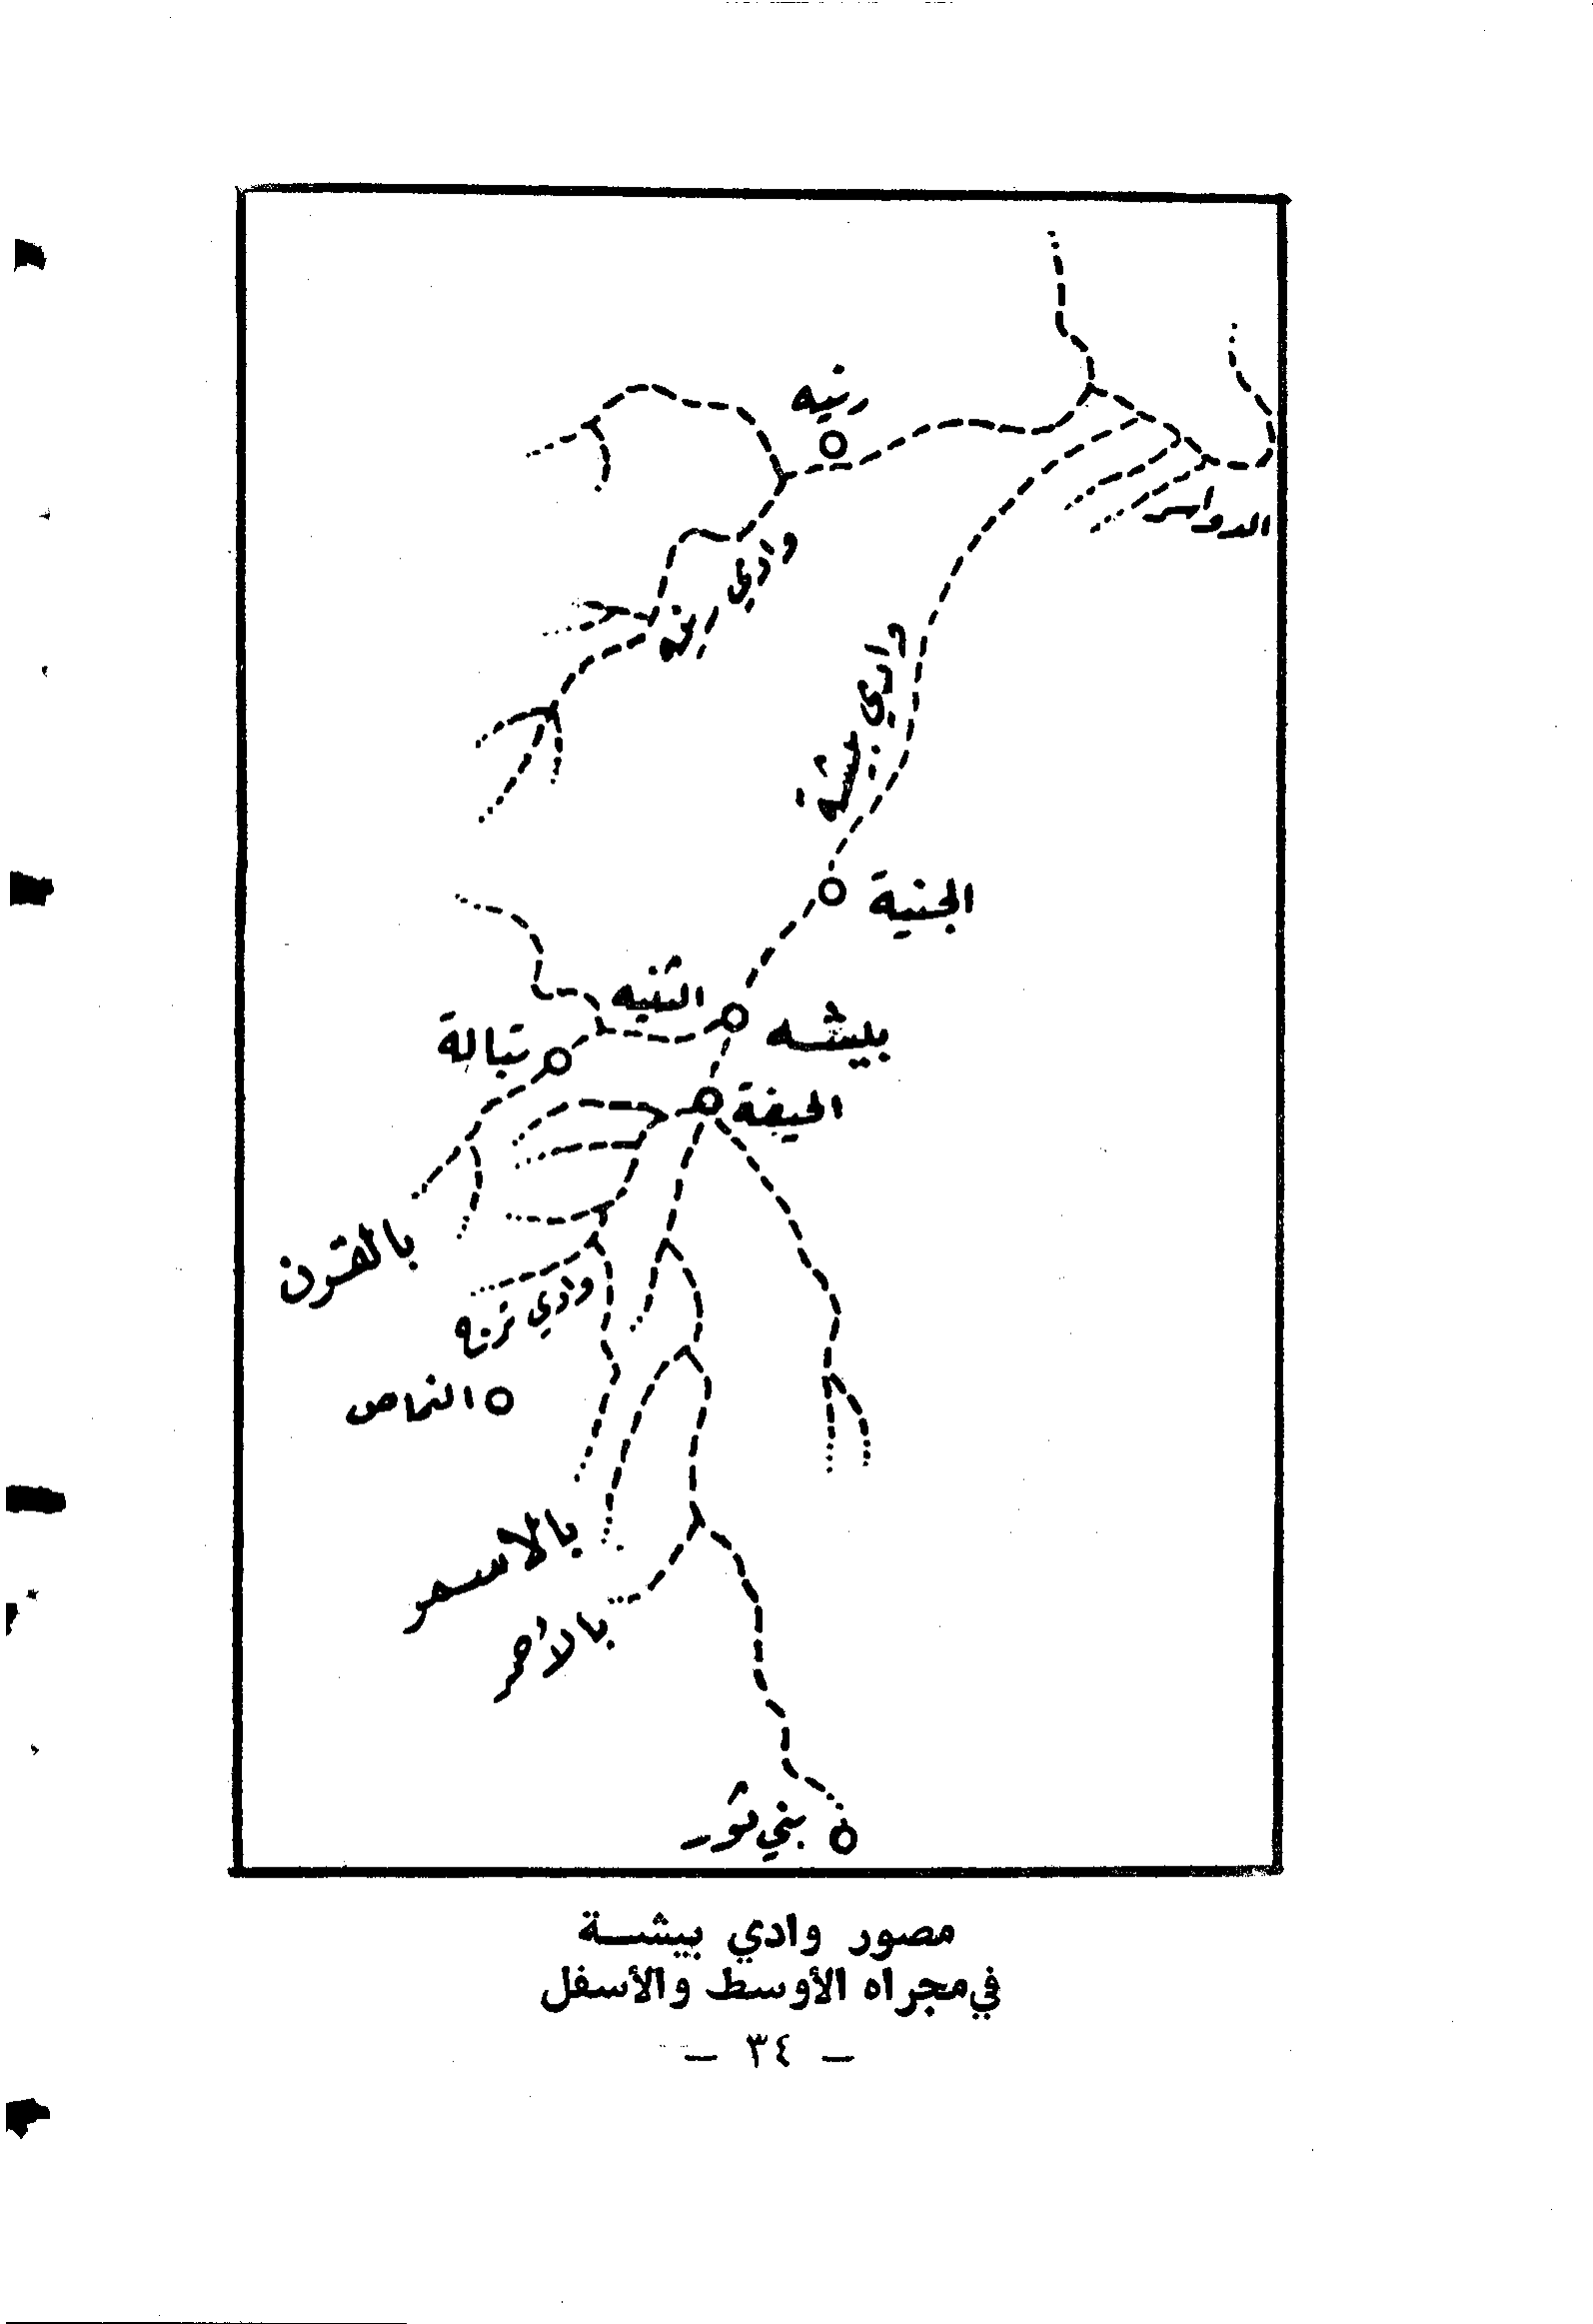 رنيه
الدواسر
وادي رنيه
وادي بيشة
الجنينة
الثنيه
بيشه
تبالة
الحيفة
بالقرن
وادي ترج
النماص
بالاسمر
بالأحمر
بني ثور
مصور وادي بيشة
في مجراه الأوسط والأسفل
— ٣٤ —